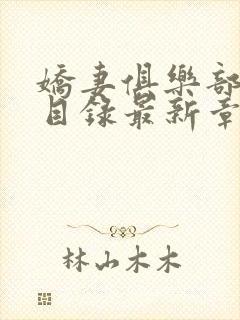 嬌妻俱樂部
目錄最新章
林山木木